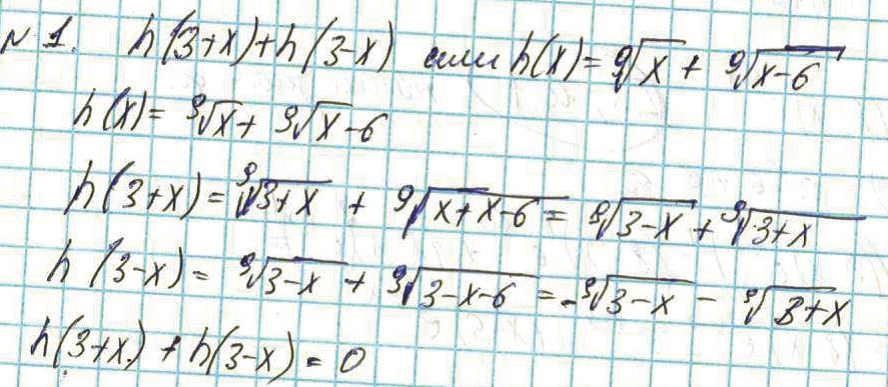 № 1. h(3+x)+h(3-x) если h(x)= ⁹√x + ⁹√(x-6)
h(x)= ⁹√x + ⁹√x-6
h(3+x)= ⁹√(3+x) + ⁹√(x+x-6) = ⁹√(3-x) + ⁹√(3+x)
h(3-x)= ⁹√(3-x) + ⁹√(3-x-6) = -⁹√(3-x) - ⁹√(3+x)
h(3+x)+h(3-x)=0